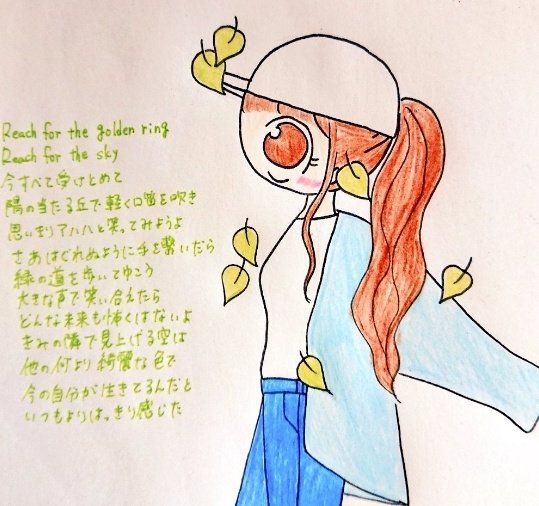 Reach for the golden ring
Reach for the sky
今すべて受けとめて
陽の当たる丘で軽く口笛を吹き
思いきりアハハと笑ってみようよ
さあはぐれぬように手を繋いだら
緑の道を歩いてゆこう
大きな声で笑い合えたら
どんな未来も怖くはないよ
きみの隣で見上げる空は
他の何より綺麗な色で
今の自分が生きてるんだと
いつもよりはっきり感じた